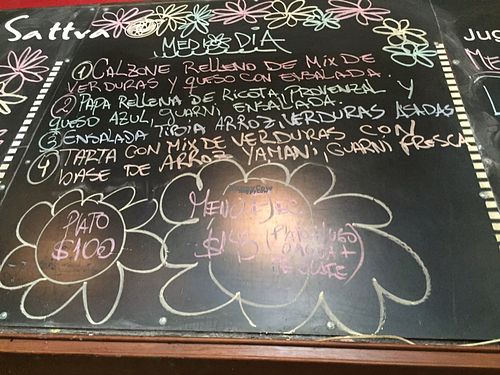 Sattva
MEDIODIA
① CALZONE RELLENO DE MIX DE
VERDURAS Y QUESO CON ENSALADA.
② PAPA RELLENA DE RICOTA, PROVENZAL Y
QUESO AZUL, GUARNI ENSALADA.
③ ENSALADA TIBIA ARROZ VERDURAS ASADAS
④ TARTA CON MIX DE VERDURAS CON
BASE DE ARROZ YAMANI, GUARNI FRESCA
PLATO
$100
MENU
JUG
ME